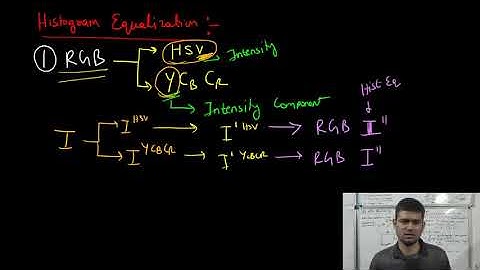 Histogram Equalization :-
① RGB → HSV → Intensity
→ Y CB CR
→ Intensity Component
Hist-Eq
I → I HSV → I' HSV → RGB I''
→ I YCBCR → I' YCBCR → RGB I''